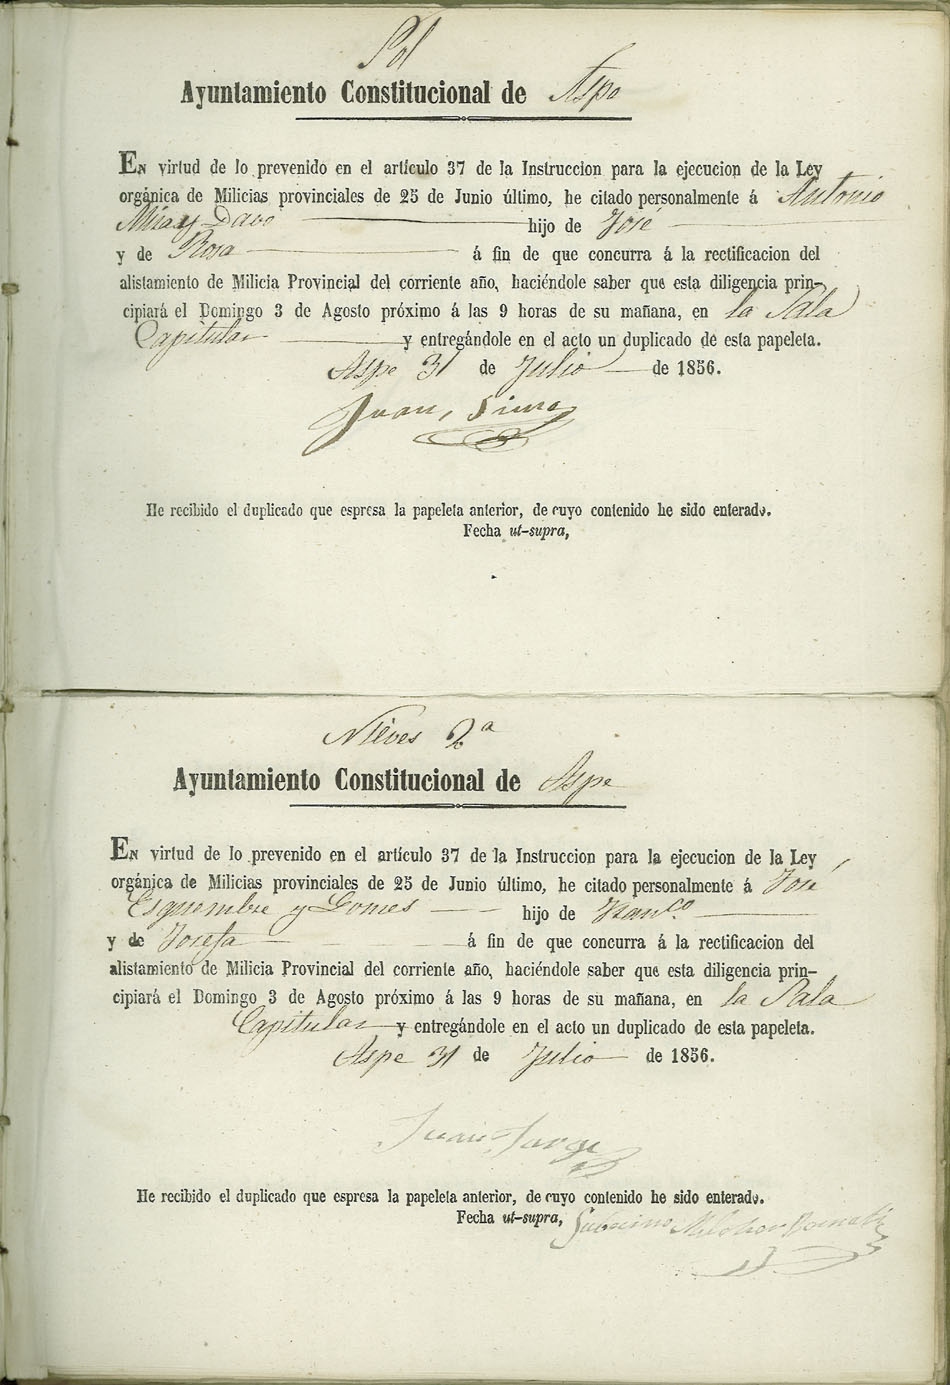 Pol
Ayuntamiento Constitucional de Aspe
En virtud de lo prevenido en el artículo 37 de la Instruccion para la ejecucion de la Ley
orgánica de Milicias provinciales de 25 de Junio último, he citado personalmente á Antonio
Mira y Davo hijo de José
y de Rosa á fin de que concurra á la rectificacion del
alistamiento de Milicia Provincial del corriente año, haciéndole saber que esta diligencia prin-
cipiará el Domingo 3 de Agosto próximo á las 9 horas de su mañana, en la Sala
Capitular y entregándole en el acto un duplicado de esta papeleta.
Aspe 31 de Julio de 1856.
Juan
He recibido el duplicado que espresa la papeleta anterior, de cuyo contenido he sido enterado.
Fecha ut-supra,
Nieves 2a
Ayuntamiento Constitucional de Aspe
En virtud de lo prevenido en el artículo 37 de la Instruccion para la ejecucion de la Ley
orgánica de Milicias provinciales de 25 de Junio último, he citado personalmente á José
Esquembre y Gomes hijo de Franco
y de Josefa á fin de que concurra á la rectificacion del
alistamiento de Milicia Provincial del corriente año, haciéndole saber que esta diligencia prin-
cipiará el Domingo 3 de Agosto próximo á las 9 horas de su mañana, en la Sala
Capitular y entregándole en el acto un duplicado de esta papeleta.
Aspe 31 de Julio de 1856.
Juan
He recibido el duplicado que espresa la papeleta anterior, de cuyo contenido he sido enterado.
Fecha ut-supra,